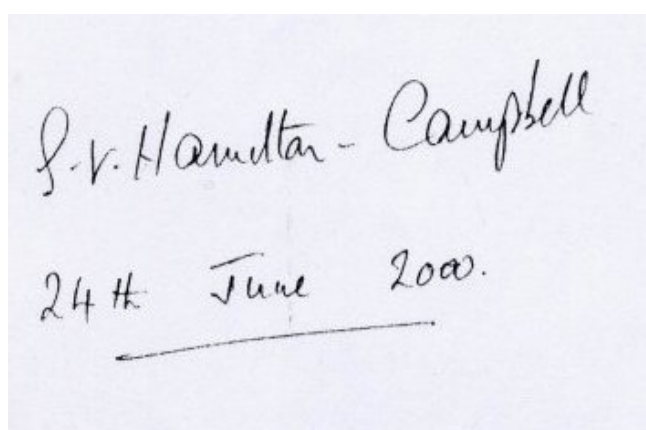 S.V. Hamilton-Campbell
24th June 2000.